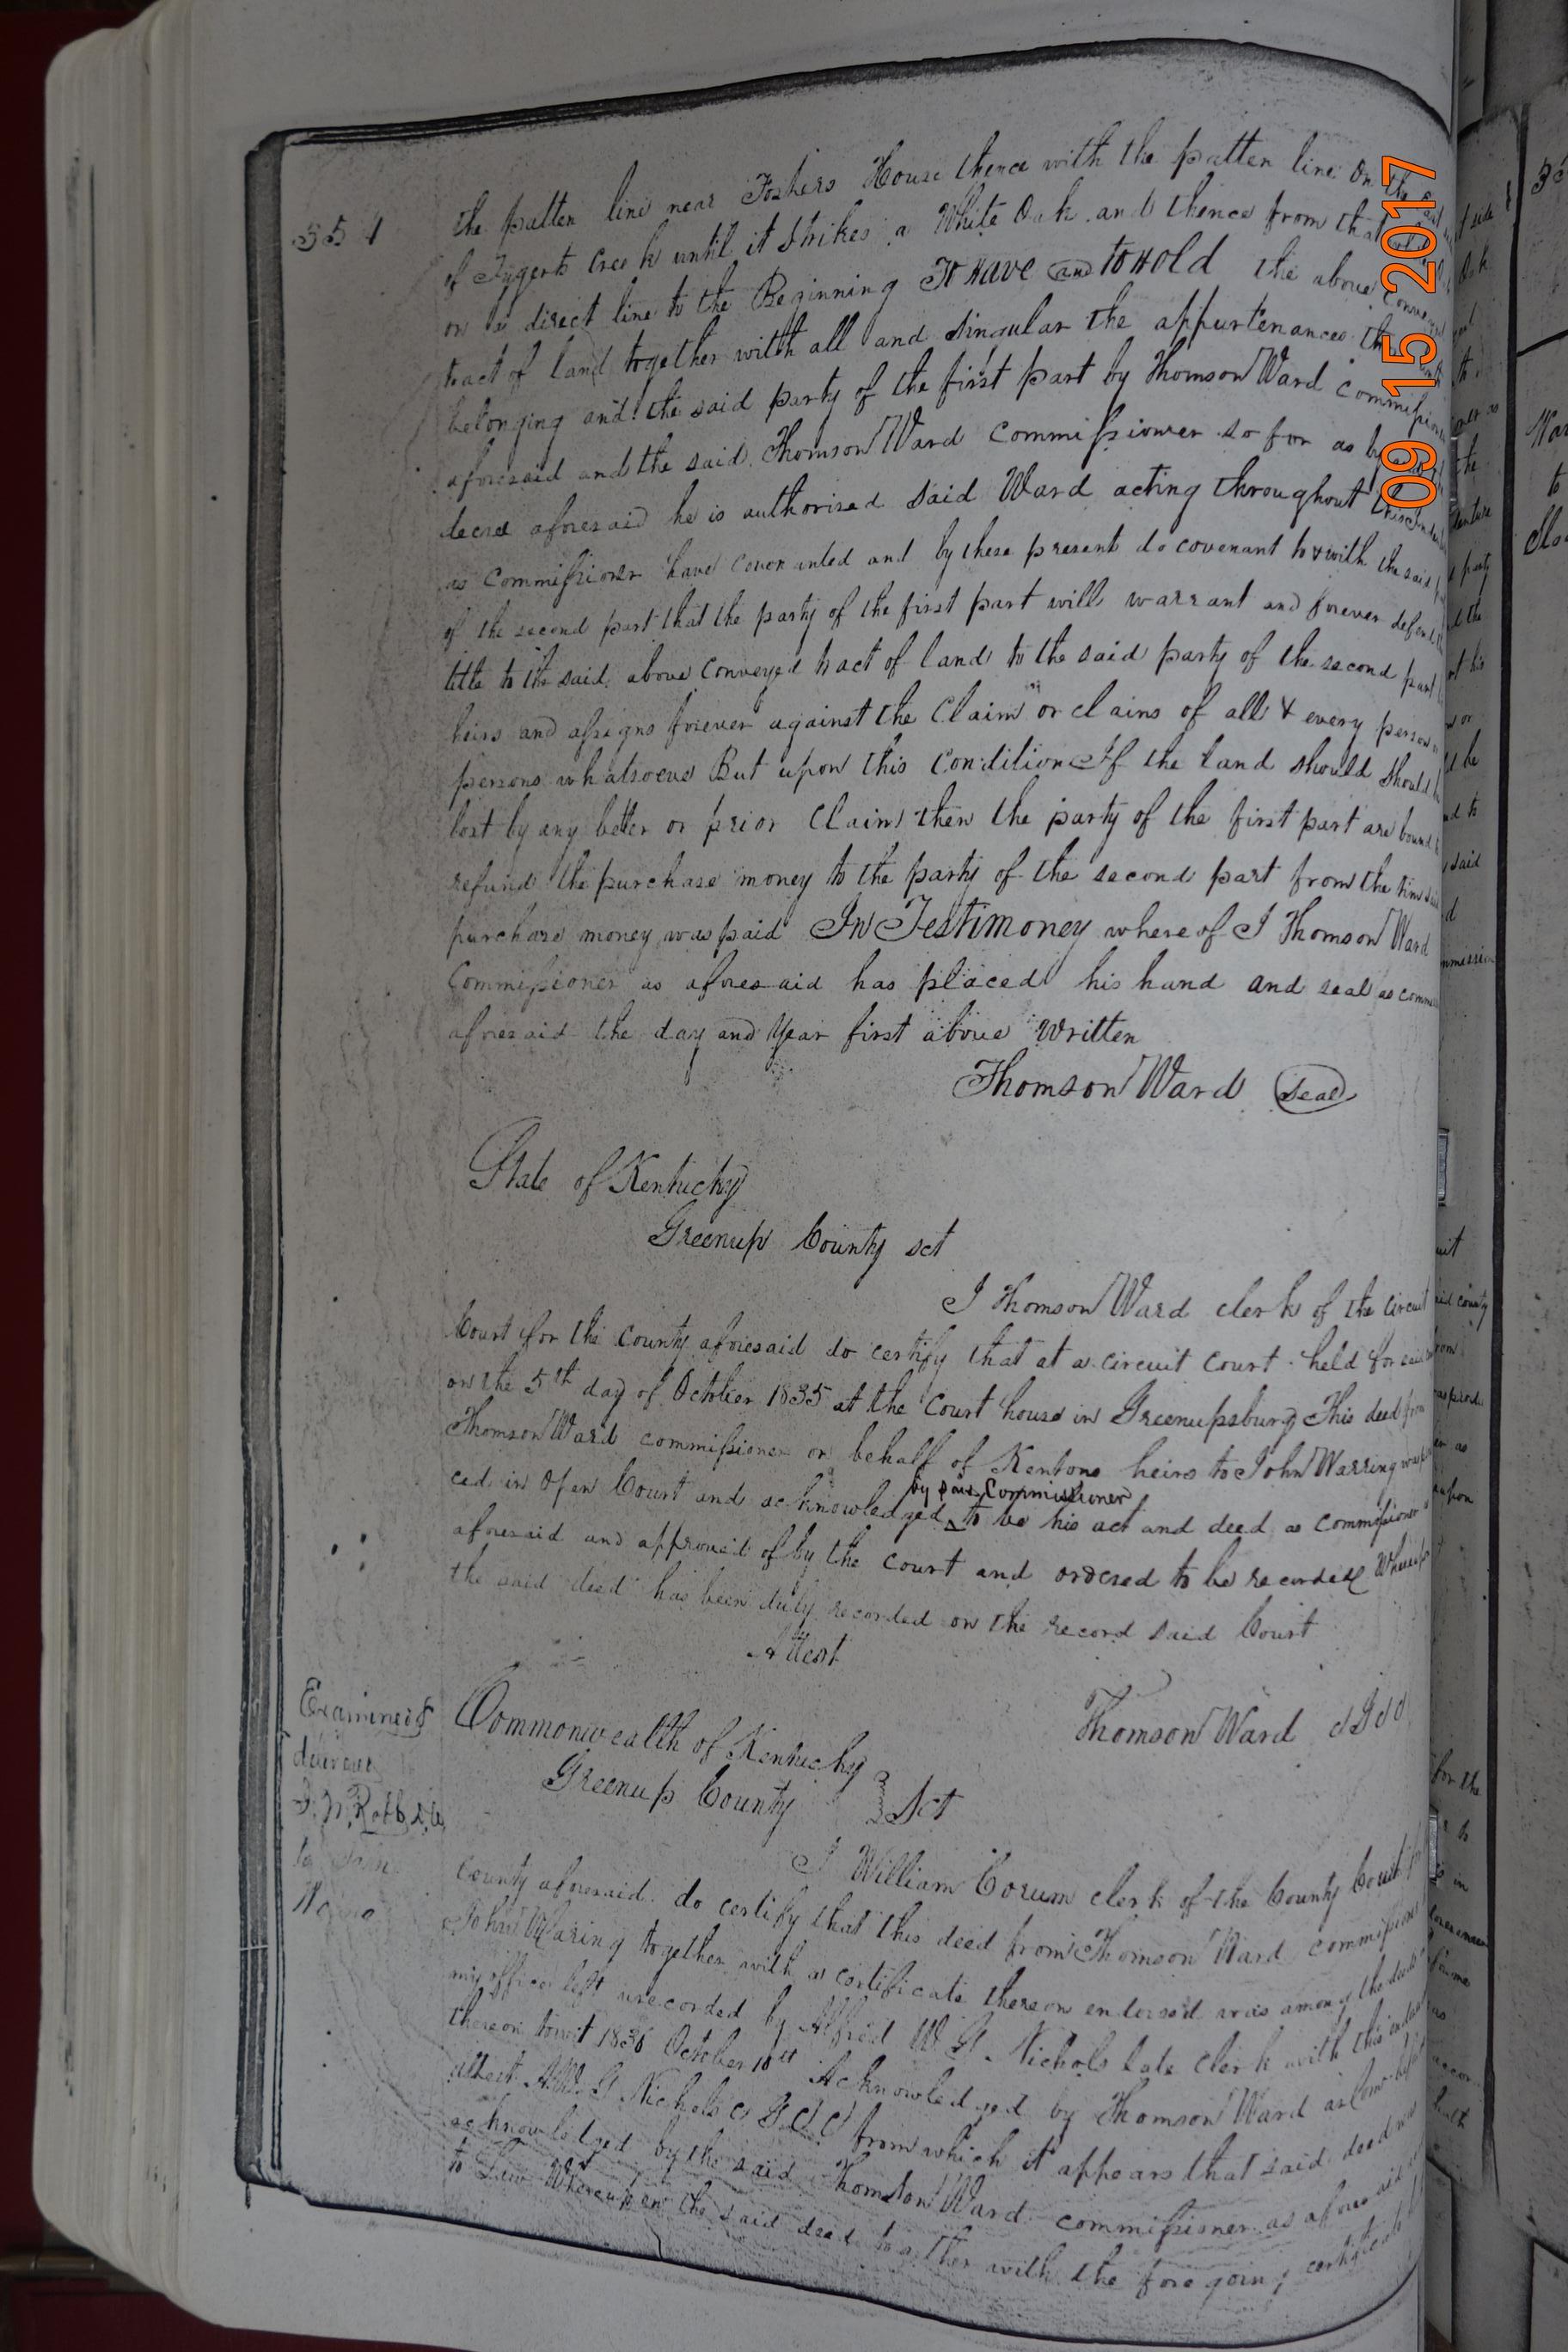 354
the patten line near Foshers House thence with the patten line On the East
of Tygerts Creek until it Strikes a White Oak and thence from that
on a direct line to the Beginning To Have and to Hold the above
tract of land together with all and singular the appurtenances
belonging and the said party of the first part by Thomson Ward
aforesaid and the said Thomson Ward Commissioner so far as by
decree aforesaid he is authorised said Ward acting throughout
as Commissioner have covenanted and by these present do covenant to & with the said
of the second part that the party of the first part will warrant and forever defend
title to the said above conveyed tract of land to the said party of the second part
heirs and assigns forever against the Claim or clains of all & every person
persons whatsoever But upon this Condition If the land should should
lost by any better or prior Claim then the party of the first part are bound
refund the purchase money to the party of the second part from the time
purchase money was paid In Testimoney where of I Thomson Ward
Commissioner as aforesaid has placed his hand and seal as
aforesaid the day and Year first above Written
Thomson Ward Seal
State of Kentucky
Greenup County sct
I Thomson Ward clerk of the Circuit
Court for the County aforesaid do certify that at a circuit Court held for said
on the 5th day of October 1835 at the Court house in Greenupsburg This deed from
Thomson Ward commissioner on behalf of Kentons heirs to John Warring
ced in Open Court and acknowledged to be his act and deed as Commissioner
by said Commissioner
aforesaid and approved of by the Court and ordered to be recorded
the said deed has been duly recorded on the record said Court
Attest
Thomson Ward
Examined &
Commonwealth of Kentucky
Greenup County Sct
I William Corum clerk of the County Court
County aforesaid do certify that this deed from Thomson Ward
John Waring together with a certificate thereon endorsed was among the deeds
my office left unrecorded by Alfred W G Nichols late clerk with this
thereon towit 1836 October 10th Acknowledged by Thomson Ward as
attest A W G Nichols from which it appears that said deed was
acknowledged by the said Thomson Ward commissioner as aforesaid
to Law Whereupon the said deed together with the foregoing certificate
09 15 2017